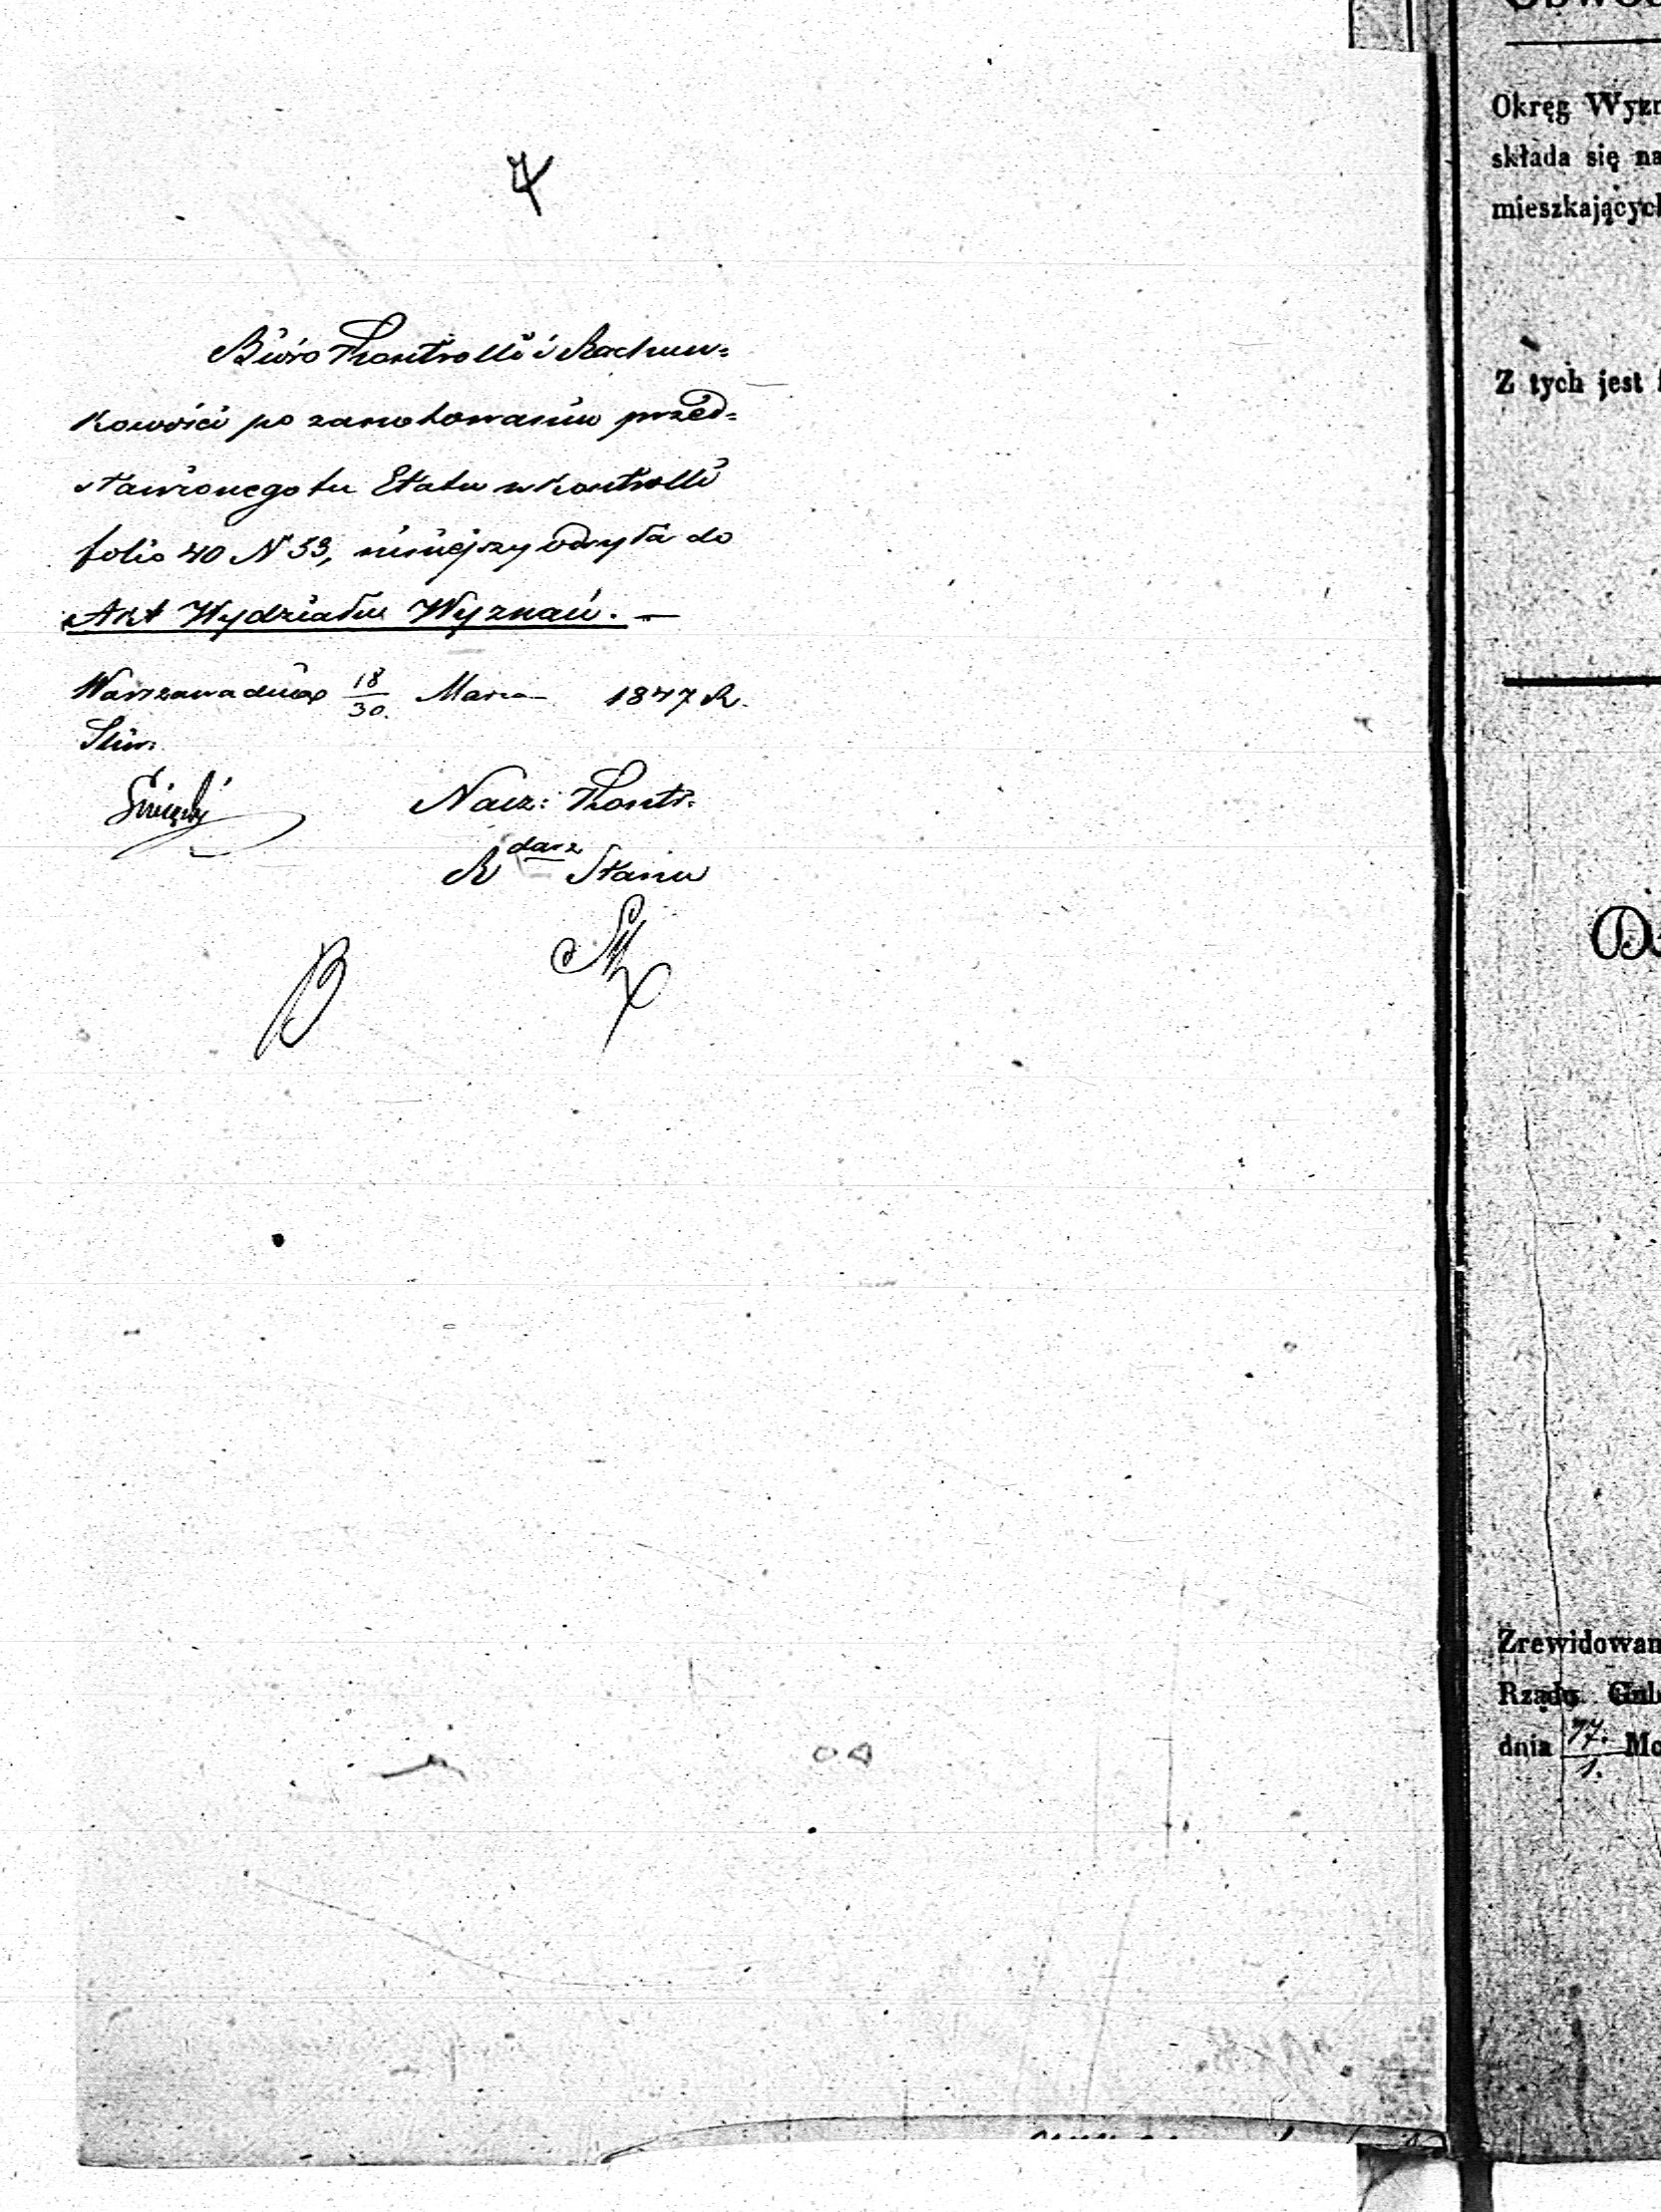 4
Biuro Kontrolli i Rachun=
kowości po zanotowaniu przed=
stawionego tu Etatu w Kontrolli
folio 40 N 53, niniejszy odsyła do
Akt Wydziału Wyznań. —
Warszawa dnia 18/30. Marca 1847 R.
Nacz: Kontr:
R darz Stanu
Obwod
Okręg Wyzn
składa się na
mieszkających
Z tych jest
Zrewidowan
Rządu Gub
dnia 17./1. Mc